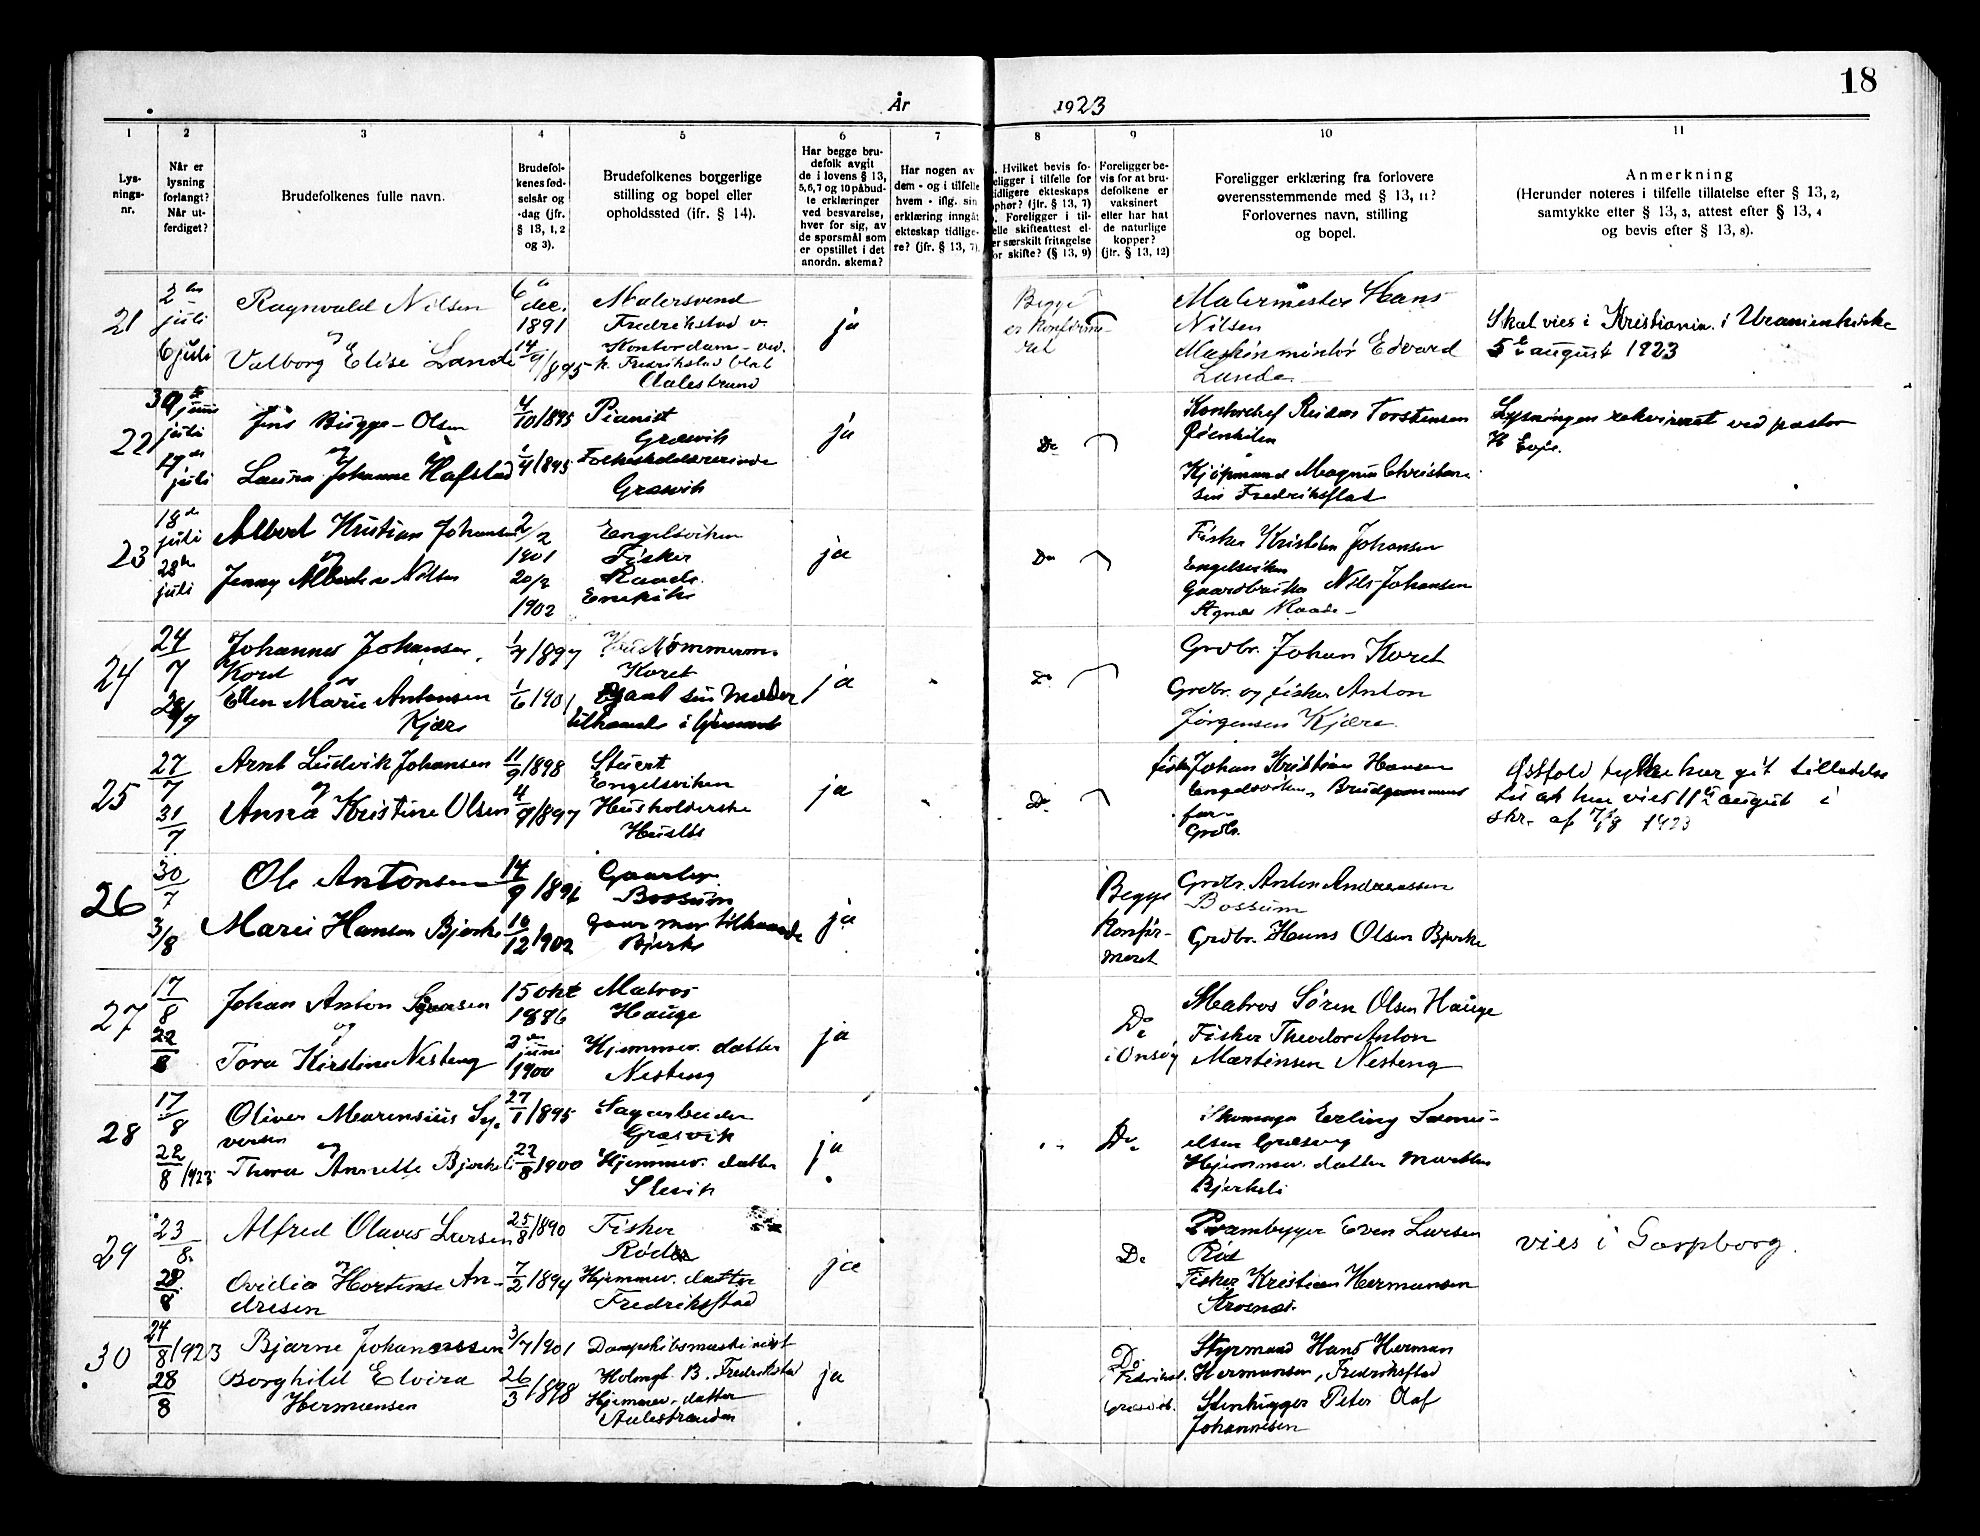 18
År 1923
1 2 3 4 5 6 7 8 9 10 11
Lys-
nings-
nr.
Når er
lysning
forlangt?
Når ut-
ferdiget?
Brudefolkenes fulle navn.
Brudefol-
kenes fød-
selsår og
-dag (jfr.
§ 13, 1, 2
og 3).
Brudefolkenes borgerlige
stilling og bopel eller
opholdssted (ifr. § 14).
Har begge bru-
defolk avgit
de i lovens § 13,
5, 6, 7 og 10 påbud-
te erklæringer
ved besvarelse,
hver for sig, av
de spørsmål som
er opstillet i det
anordn. skema?
Har nogen av
dem - og i tilfelle
hvem - iflg. sin
erklæring inngåt
ekteskap tidlige-
re? (jfr. § 13, 7).
Hvilket bevis fo-
eligger i tilfelle for
idligere ekteskaps
phør? (jfr. § 13, 7)
. Foreligger i til-
elle skifteattest el-
er særskilt fritagelse
or skifte? (§ 13, 9)
Foreligger be-
vis for at bru-
defolkene er
vaksinert
eller har hat
de naturlige
kopper?
(jfr. § 13, 12)
Foreligger erklæring fra forlovere
overensstemmende med § 13, 11?
Forlovernes navn, stilling
og bopel.
Anmerkning
(Herunder noteres i tilfelle tillatelse efter § 13, 2,
samtykke efter § 13, 3, attest efter § 13, 4
og bevis efter § 13, 8).
21
2den
juli
6 juli
Ragnvald Nilsen
og
Valborg Elise Lande
6te
dec.
1891
Malersvend
Fredrikstad v.
Kontordam
Fredrikstad
ja
Begge
er konfirme-
ret
Malermester Hans
Nilsen
Maskinmontør Edvard
Lunde
Skal vies i Kristiania i Uranienkirke
5te august 1923
22
juli
juli
Jens Bugge-Olsen
og
Laura Johanne Hafstad
4/10 1895
1/4 1895
Pianist
Græsvik
Folkeskolelærerinde
Græsvik
ja
Do
Kontorchef Reidar Torstensen
Kjøpmand Magnus Christian-
sen Fredriksstad
Lysningen rekvireret ved pastor
H Evje.
23
18de
juli
28de
juli
Albert Kristian Johansen
og
Jenny Nilsen
2/2
1901
20/2
1902
Engelsviken
Fisker
Raade
ja
Do
Fisker Kristian Johansen
Engelsviken
Gaardbruker Nils Johansen
Raade
24
24/7
28/7
Johannes Johansen
Koret
og
Ellen Marie Antonsen
Kjære
1/7 1897
1/6 1901
Koret
sin Moder
tilhaande i
ja
Do
Grdbr. Johan Koret
Grdbr. og fisker Anton
Jørgensen Kjære
25
27/7
31/7
Arnt Ludvik Johansen
og
Anna Kristine Olsen
11/9 1898
4/9 1897
Stuert
Engelsviken
Husholderske
Husløs
ja
Do
fisker Johan Kristian Hansen
Engelsviken, Brudgommens
far
Grdbr.
Østfold fylke har git tilladelse
til at han vies 11te august i
skr. af 7/8 1923
26
30/7
3/8
Ole Antonsen
Marie Hansen Bjerke
14/9
10/12 1902
Bossum
Gaar mor tilhaande
Bjerke
ja
Begge
Konfir-
meret
Grdbr. Anton Andreassen
Bossum
Grdbr. Hans Olsen Bjerke
27
17/8
22/8
Johan Anton Sørensen
og
Tora Kirstine Nesteng
15 okt
1886
2den
juni
1900
Matros
Hauge
Hjemmev. datter
Nesteng
ja
Do
i Onsøy
Matros Søren Olsen Hauge
Fisker Theodor Anton
Martinsen Nesteng
28
17/8
22/8 1923
Oliver Marensius Sy-
versen
og
Thora Annette Bjerkeli
27/1 1895
22/8 1900
Sagarbeider
Græsvik
Hjemmev. datter
Slevik
ja
Do
Skomager Erling Samu-
elsen Græsvig
Hjemmev. datter Marthea
Bjerkeli
29
23/8
28/8
Alfred Olaves Larsen
og
Ovidia Hortense An-
dresen
25/8 1890
7/2 1894
Fisker
Rød
Hjemmev. datter
Fredriksstad
ja
Do
Prambygger Even Larsen
Rød
Fisker Kristian Hermansen
Krosnæs
vies i Sarpborg.
30
24/8 1923
28/8
Bjarne Johannessen
Borghild Elvira
Hermansen
3/7 1901
26/3 1898
Dampskibsmaskinist
Holmgt. B. Fredrikstad
Hjemmev. datter
Aalestranden
ja
Do
Styrmand Hans Herman
Hermansen, Fredriksstad
Stenhugger Peter Olaf
Johannesen